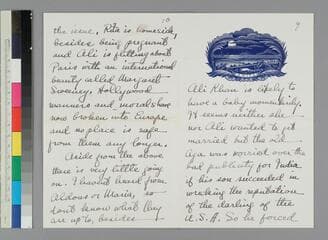 10
the issue, Rita is homesick,
besides being pregnant
and Ali is flitting about
Paris with an international
beauty called Margaret
Sweeney. Hollywood
manners and morals have
now broken into Europe
and no place is safe
from them any longer.
Aside from the above
there is very little going
on. I haven't heard from
Aldous or Maria, so
don't know what they
are up to, besides
9
Ali Khan is likely to
have a baby momentarily.
It seems neither she
nor Ali wanted to get
married but the old
Aga was worried over the
bad publicity for India
if his son succeeded in
wrecking the reputation
of the darling of the
U.S.A. So he forced